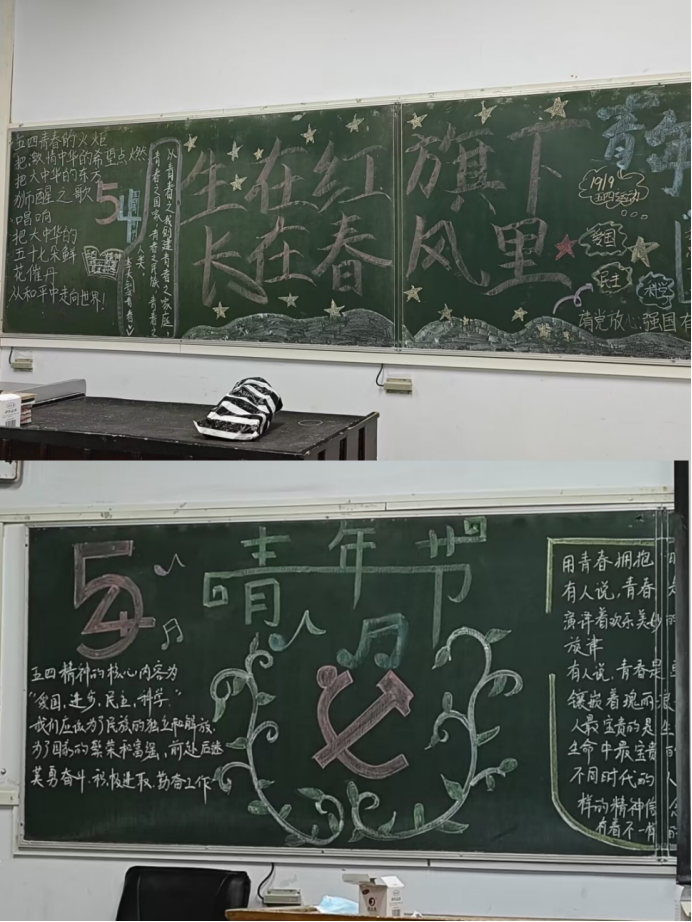 五四青春的火炬
把歌情中华的希望点燃
把大中华的东方
狮醒之歌
唱响
把大中华的
五十七朵鲜
花催开
从和平中走向世界!
54
以青春之我创建青春之家庭,
青春之国家,青春之民族,青春之
人类
生在红旗下
长在春风里
青年
1919
五四运动
爱国
民主
科学
请党放心,强国有
54
青年节
五四精神的核心内容为
“爱国,进步,民主,科学.”
我们应该为了民族的独立和解放,
为了国家的繁荣和富强,前赴后继
英勇奋斗.积极进取.勤奋工作
用青春拥抱
有人说,青春
演译着欢乐美妙
旋律
有人说,青春是
镶嵌着瑰丽
人最宝贵的是生
生命中最宝贵
不同时代的人
样的精神信念
有着不一样的